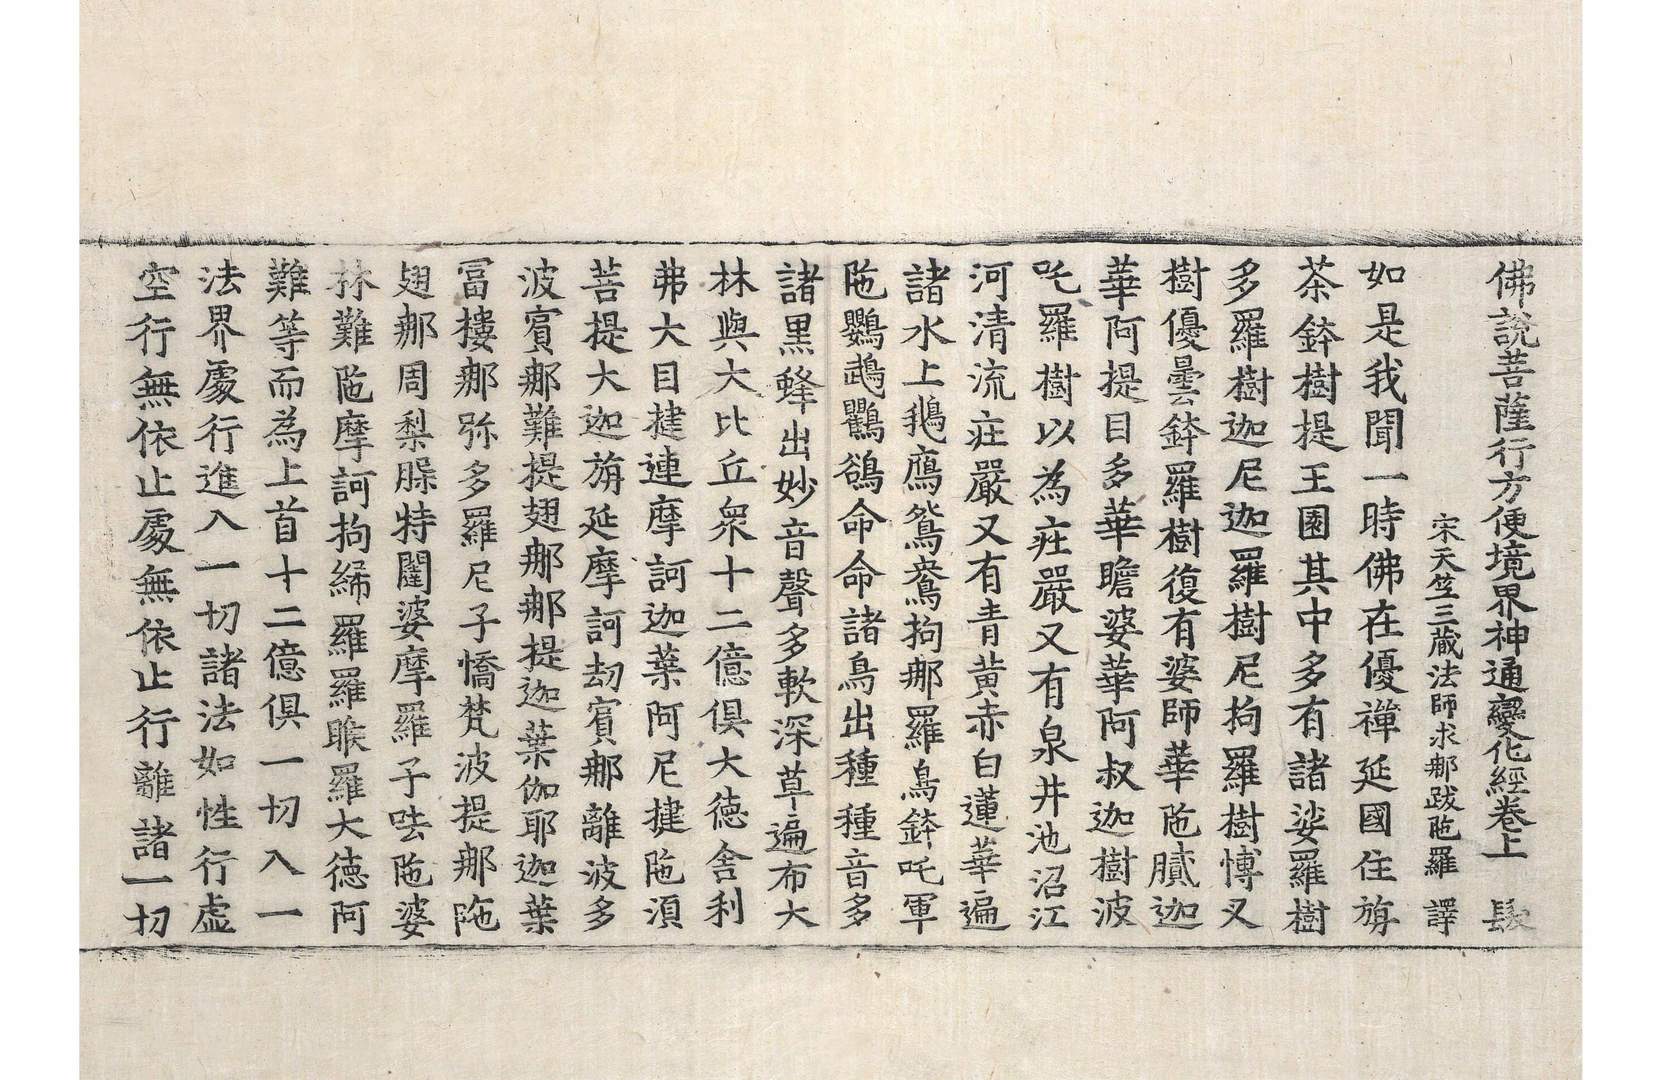 佛說菩薩行方便境界神通變化經卷上 髮
宋天竺三藏法師求那跋陁羅 譯
如是我聞一時佛在優禪延國住旃
茶鉢樹提王園其中多有諸娑羅樹
多羅樹迦尼迦羅樹尼拘羅樹愽叉
樹優曇鉢羅樹復有婆師華陁膩迦
華阿提目多華瞻婆華阿叔迦樹波
吒羅樹以為庄嚴又有泉井池沼江
河清流庄嚴又有青黄赤白蓮華遍
諸水上鵝鴈鴛鴦拘那羅鳥鉢吒軍
陁鸚鵡鸜鵒命命諸鳥出種種音多
諸黑蜂出妙音聲多軟深草遍布大
林與大比丘衆十二億俱大德舍利
弗大目揵連摩訶迦葉阿尼揵陁湏
菩提大迦旃延摩訶劫賓那離波多
波賓那難提翅那那提迦葉伽耶迦葉
冨樓那弥多羅尼子憍梵波提那陁
翅那周梨脲特闍婆摩羅子呿陁婆
林難陁摩訶拘絺羅羅睺羅大德阿
難等而為上首十二億俱一切入一
法界處行進入一切諸法如性行虛
空行無依止處無依止行離諸一切